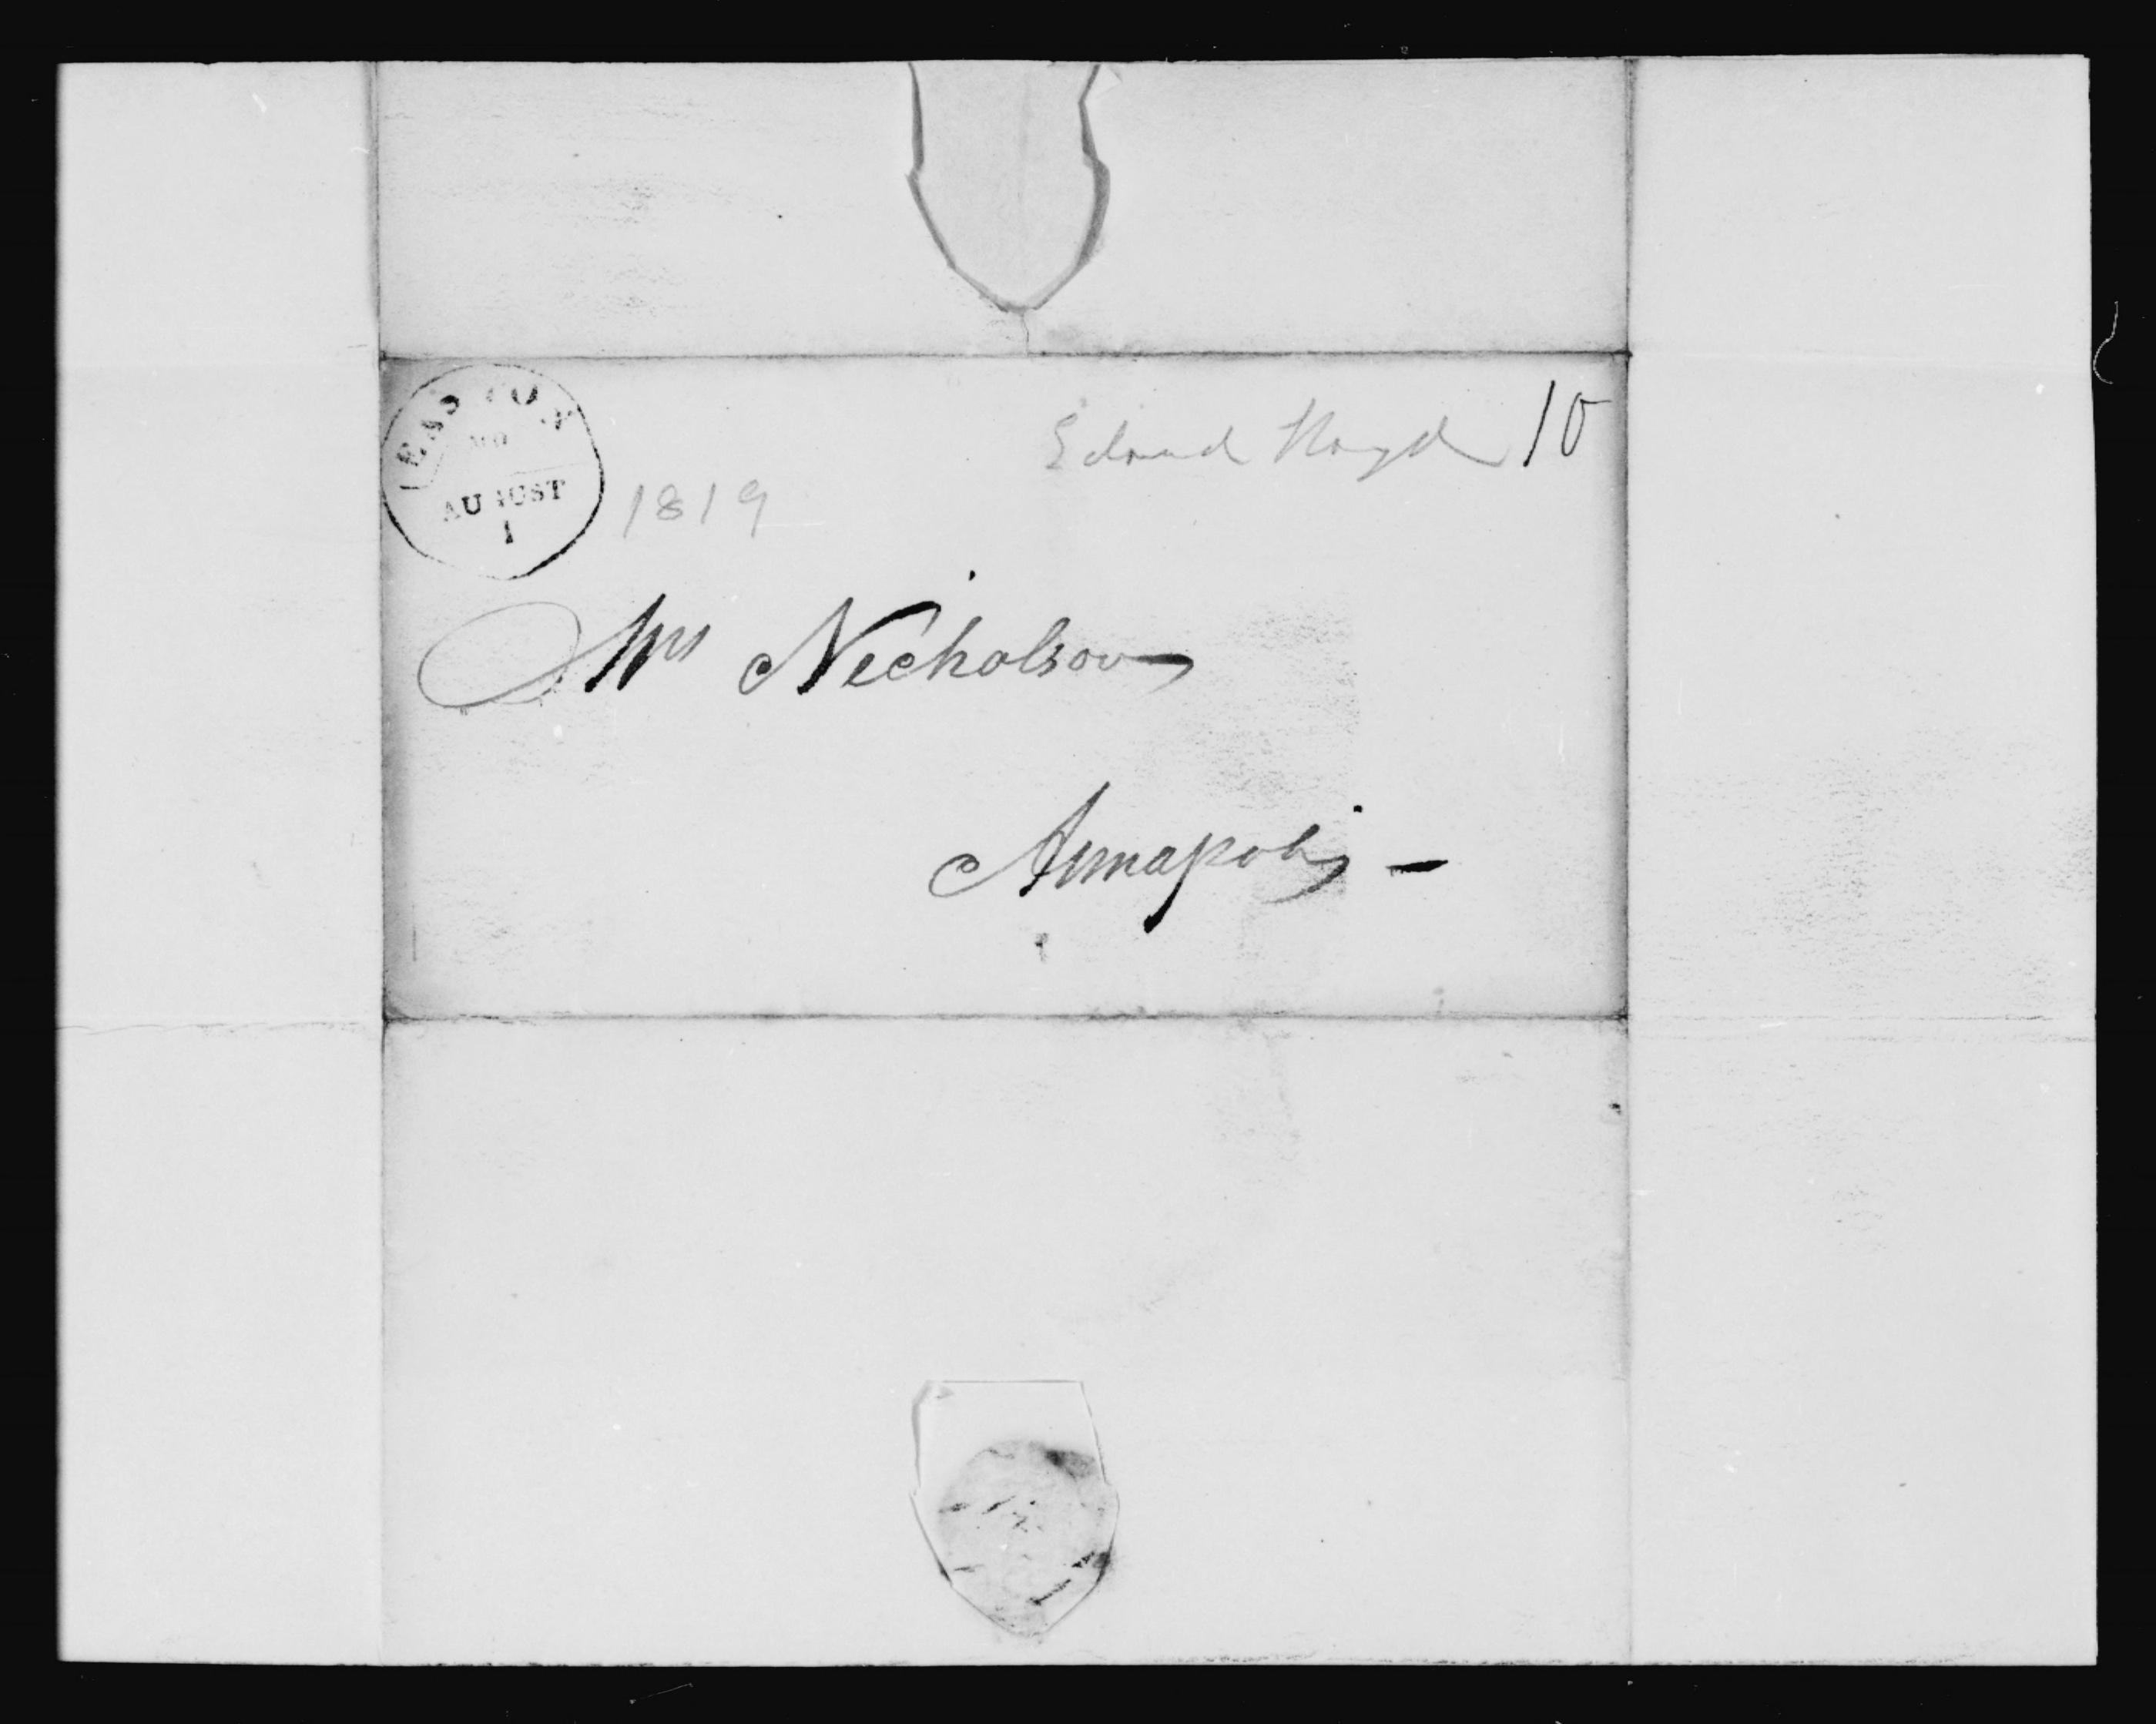 EASTON
MD
AUGUST
1
1819
Edward Lloyd 10
Mrs Nicholson
Annapolis –